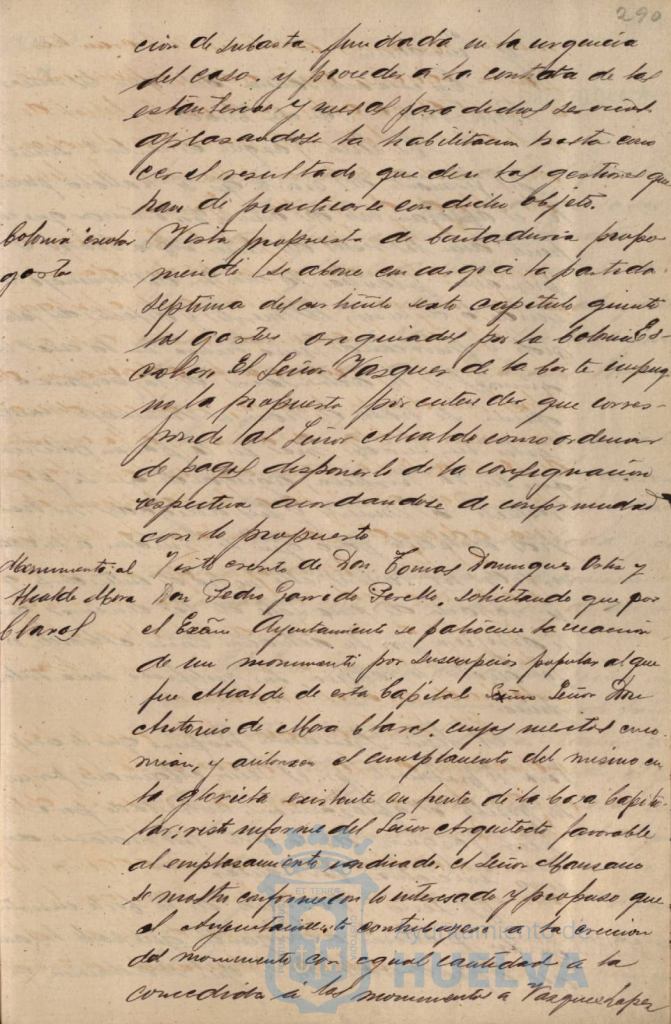 290
ción de subasta fundada en la urgencia
del caso, y proceder a la contata de las
estanterias y mesas para dichos servicios
aplasandose la habilitacion hasta cono
cer el resultado que den las gestiones que
han de practicarse con dicho objeto.
Colonia escolar
gasto
Vista propuesta de Contaduria propo
niendo se abone con cargo á la partida
septima del articulo sexto capitulo quinto
los gastos originados por la Colonia Es-
colar. El Señor Vazquez de la Corte impug
no la propuesta por entender que corres-
ponde al Señor Alcalde como ordenador
de pagos disponerlo de la consignación
respectiva acordandose de conformidad
con lo propuesto
Monumento al
Alcalde Mora
Claros
Visto escrito de Don Tomas Dominguez Ortiz y
Don Pedro Garrido Perelló, solicitando que por
el Excmo Ayuntamiento se patrocine la creación
de un monumento por suscripcion popular al que
fue Alcalde de esta Capital Señor Don
Antonio de Mora Claros, cuyos meritos enco-
mian, y autorizan el emplazamiento del mismo en
la glorieta existente en frente de la Casa Capitu-
lar; visto informe del Señor Arquitecto favorable
al emplazamiento indicado, el Señor Manzano
se mostro conforme con lo interesado y propuso que
el Ayuntamiento contribuyera a la creccion
del monumento con igual cantidad a la
concedida á los monumentos a Vazquez Lopez
ET TERRÆ
Ayuntamiento de
HUELVA